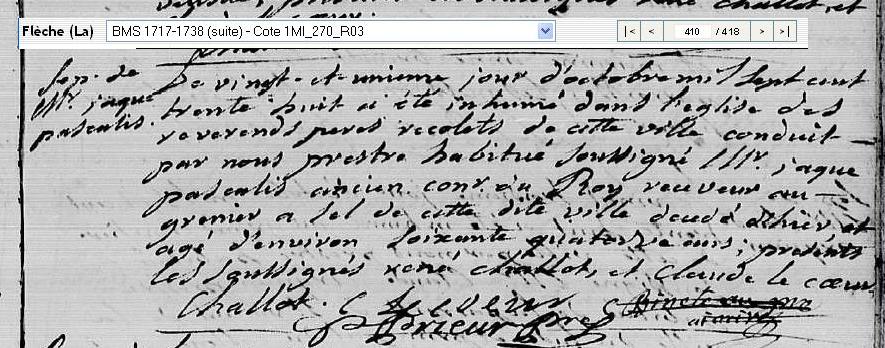 Flèche (La) BMS 1717-1738 (suite) - Cote 1MI_270_R03 |< < 410 / 418 > >|
Sep. de
Mr. jaque
pascalis.
Le vingt-et-unieme jour d'octobre mil sept cent
trente huit a été inhumé dans l'eglise des
reverends peres recolets de cette ville conduit
par nous prestre habitué soussigné Mr. jaque
pascalis ancien conr. du Roy receveur au
grenier a sel de cette dite ville decedé d'hier, et
agé d'environ soixante quatorze ans, presents
les soussignés rené challot, et Claude le cœur
Challot. C le cœur
Prieur pre